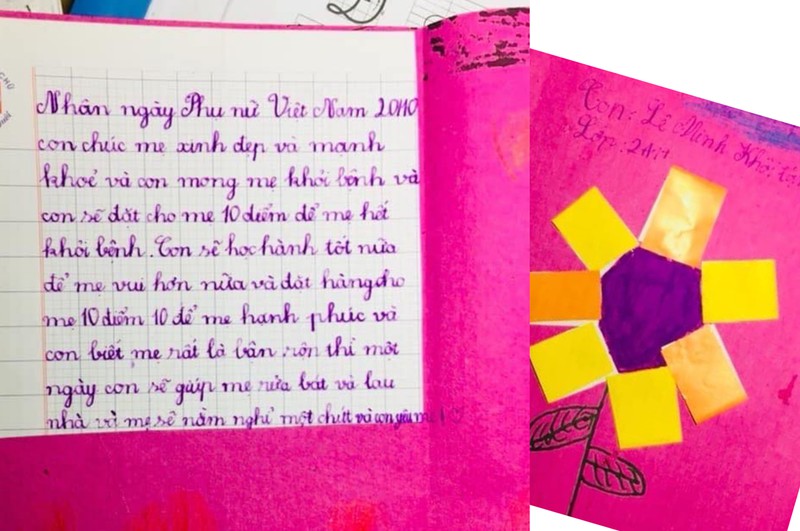 Nhân ngày Phụ nữ Việt Nam 20/10
con chúc mẹ xinh đẹp và mạnh
khoẻ và con mong mẹ khỏi bệnh và
con sẽ đặt cho mẹ 10 điểm để mẹ hết
khỏi bệnh. Con sẽ học hành tốt nữa
để mẹ vui hơn nữa và đặt hàng cho
mẹ 10 điểm 10 để mẹ hạnh phúc và
con biết mẹ rất là bận rộn thì một
ngày con sẽ giúp mẹ rửa bát và lau
nhà vì mẹ sẽ nằm nghỉ một chút và con yêu mẹ
Con: Lê Minh Khôi
Lớp: 2A11